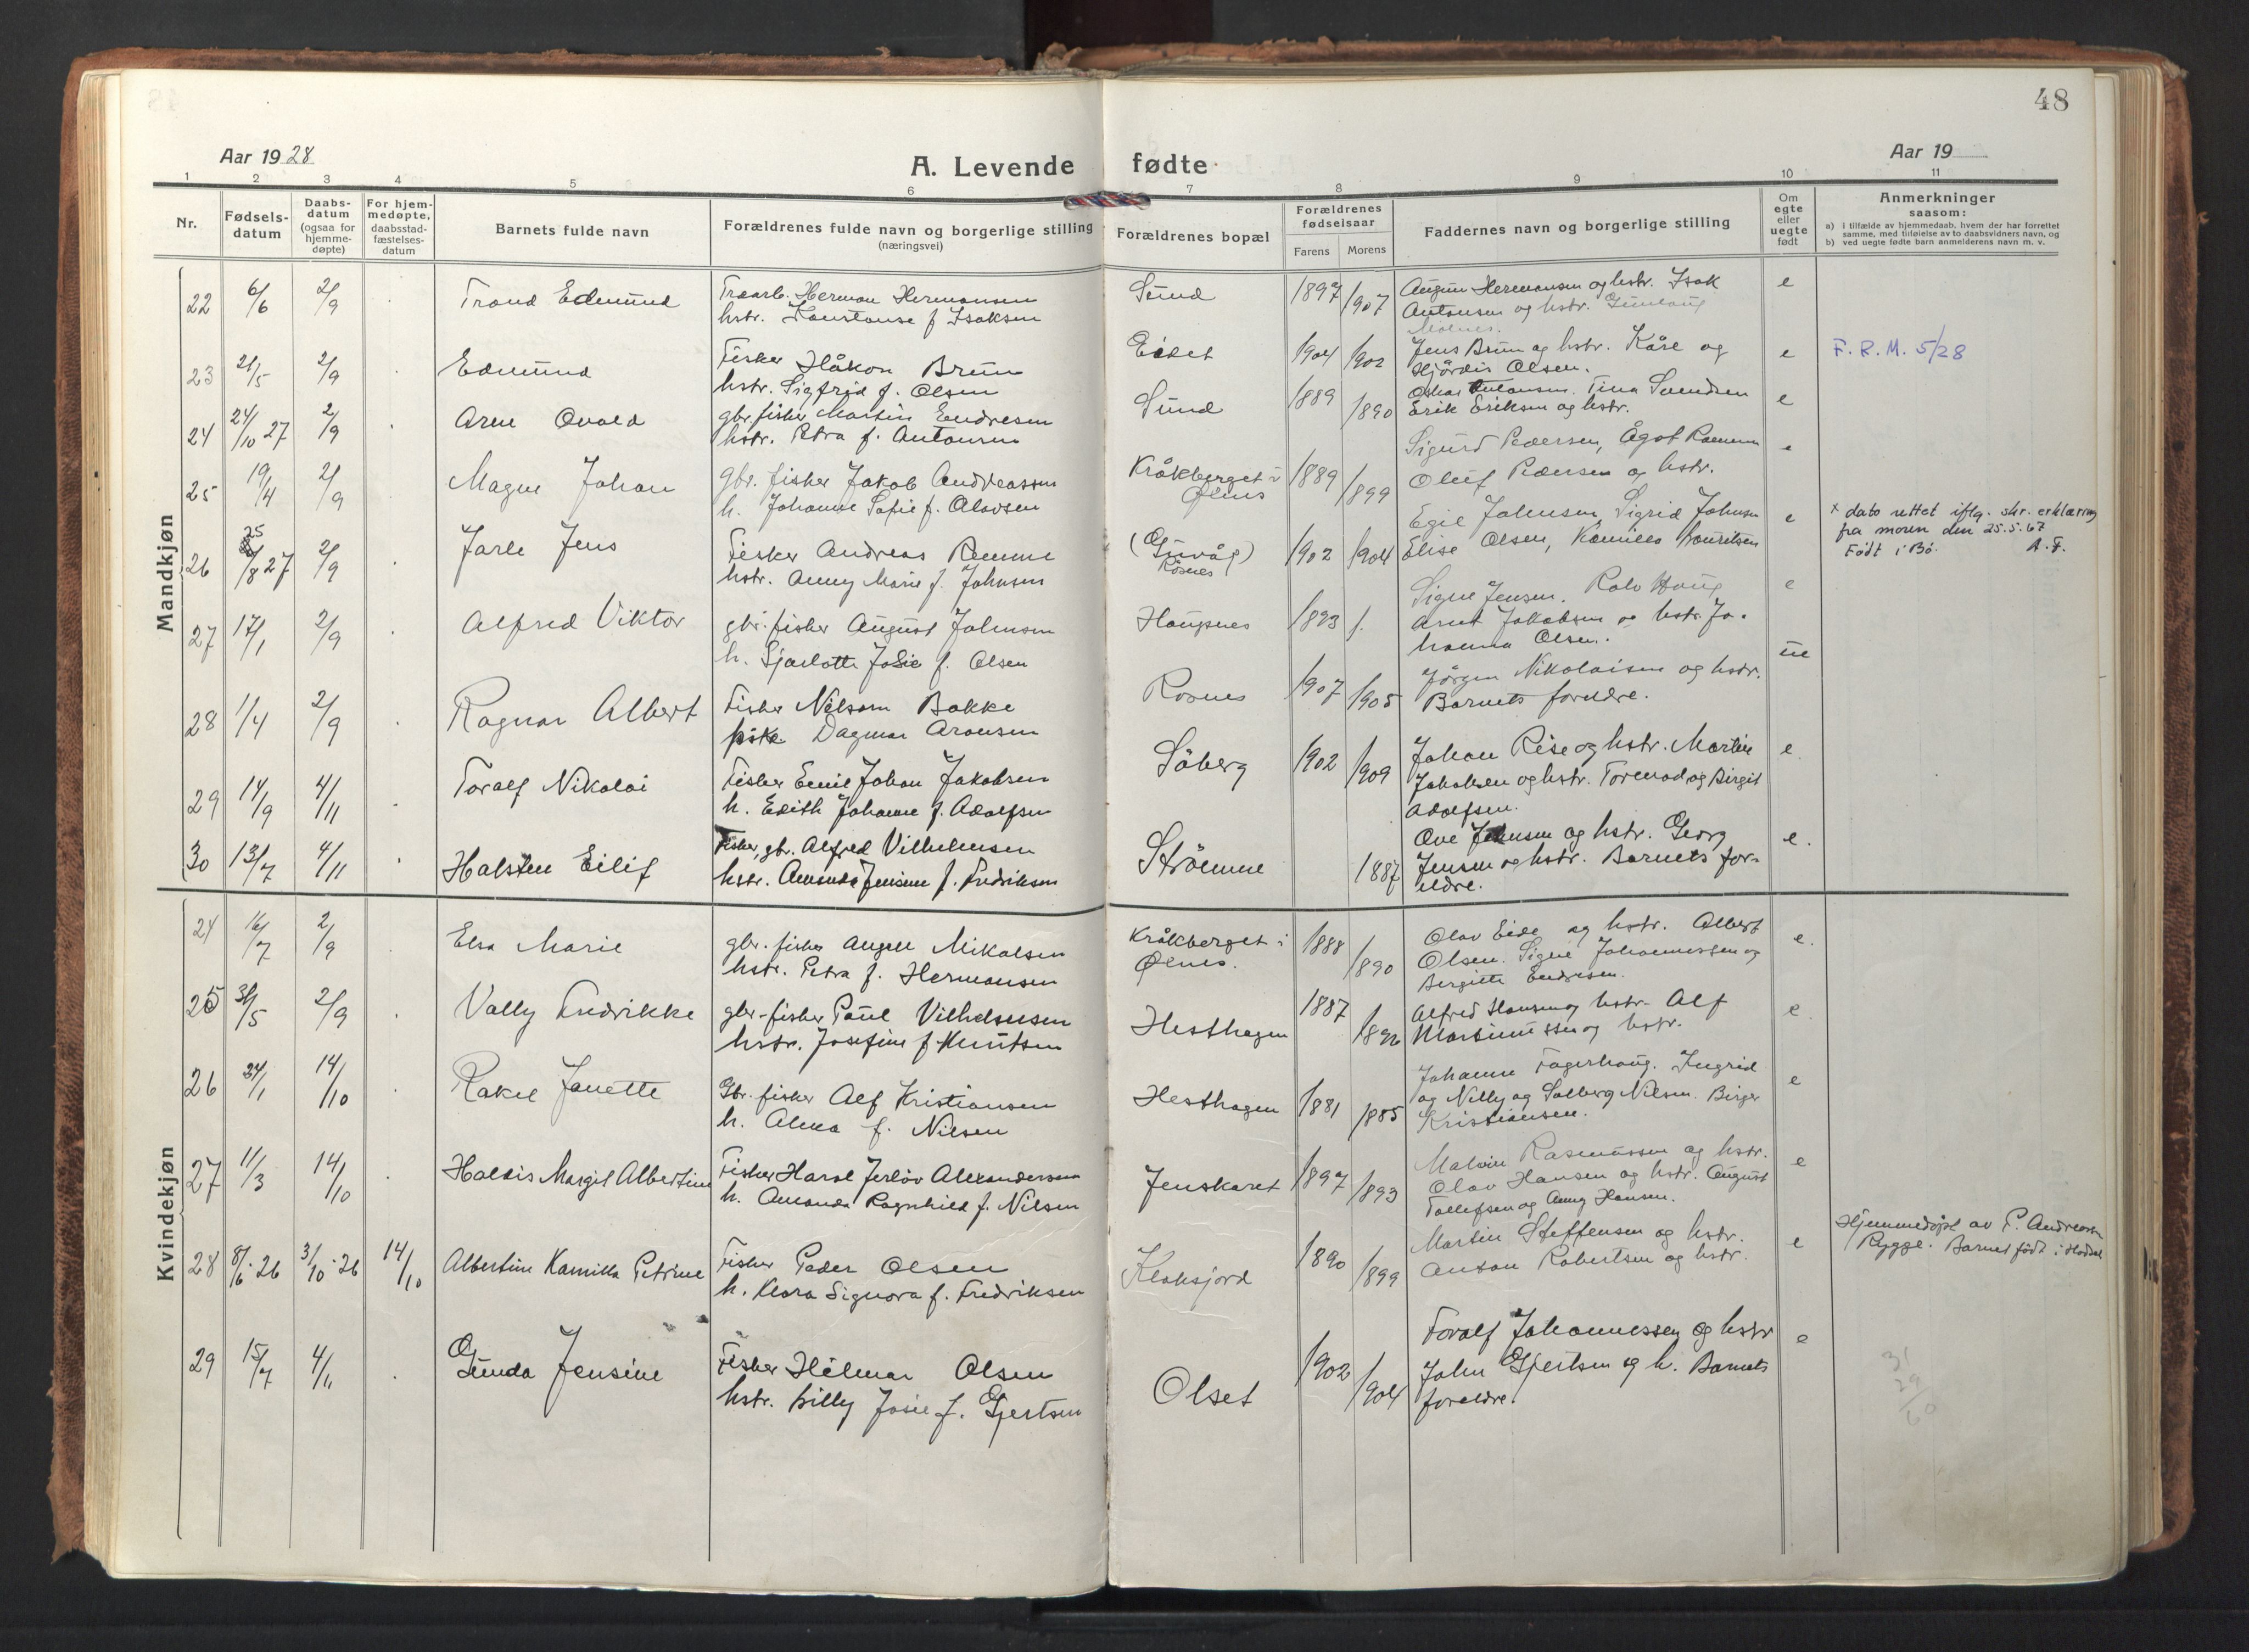 48
Aar 1928
A. Levende fødte
Aar 19
1 2 3 4 5 6 7 8 9 10 11
Nr.
Fødsels-
datum
Daabs-
datum
(ogsaa for
hjemme-
døpte)
For hjem-
medøpte,
daabsstad-
fæstelses-
datum
Barnets fulde navn
Forældrenes fulde navn og borgerlige stilling
(næringsvei)
Forældrenes bopæl
Forældrenes
fødselsaar
Farens Morens
Faddernes navn og borgerlige stilling
Om
egte
eller
uegte
født
Anmerkninger
saasom:
a) i tilfælde av hjemmedaab, hvem der har forrettet
samme, med tilføielse av to daabsvidners navn, og
b) ved uegte fødte barn anmelderens navn m. v.
Mandkjøn
22 6/6 2/9 Trond Edmund
Traarb. Herman Hermansen
hstr. Konstanse f Isaksen
Sund 1897 1907
Hermansen og hstr. Isak
Antonsen og hstr.
e
23 21/5 2/9 Edmund
Fisker Håkon Brun
hstr. Sigfrid f. Olsen
Eidet 1904 1902
Jens Brun og hstr. Kåre og
Hjørdis Olsen.
e
F. R. M. 5/28
24 24/10 27 2/9 Arne Ovald
gbr. fisker Martin Endresen
hstr. Petra f. Antonsen
Sund 1889 1890
Oskar Antonsen. Tina
Erik Eriksen og hstr.
e
25 19/4 2/9 Magne Johan
gbr. fisker Jakob Andreassen
h. Johanne Sofie f. Olavsen
Kråkberget i
Øines
1889 1899
Sigurd Pedersen, Ågot
Oluf Pedersen og hstr.
e
26 25/8 27 2/9 Jarle Jens
Fisker Andreas Remme
hstr. Anny Marie f. Johnsen
(Guvåg)
Rosnes
1902 1904
Egil Johnsen, Sigrid Johnsen
Elise Olsen, Kamilla Lauritsen
e
x dato rettet iflg. skr. erklæring
fra moren den 25.5.67
Født i Bø. A.F.
27 17/1 2/9 Alfred Viktor
gbr. fisker August Johnsen
h. Sjarlotte Josie f. Olsen
Haugsnes 1893 1.
Signe Jensen. Rolv Haug
Arnt Jakobsen og hstr. Jo-
hanna Olsen.
e
28 1/4 2/9 Ragnar Albert
Fisker Nilsen Bakke
pike Dagmar Aronsen
Rosnes 1907 1905
Jørgen Nikolaisen og hstr.
Barnets foreldre.
ue
29 14/9 4/11 Toralf Nikolai
Fisker Emil Johan Jakobsen
h. Edith Johanne f. Adolfsen
Søberg 1902 1909
Johan Rise og hstr. Martin
Jakobsen og hstr. Tormod og Birgit
Adolfsen.
e
30 13/7 4/11 Halsten Eilif
Fisker, gbr. Alfred Vilhelmsen
hstr. Amanda Jensine f. Fredriksen
Strømme 1887
Ove Johnsen og hstr. Georg
Jensen og hstr. Barnets for-
eldre.
e.
Kvindekjøn
24 16/7 2/9 Elsa Marie
gbr. fisker Angell Mikalsen
hstr. Petra f. Hermansen
Kråkberget i
Øines.
1888 1890
Olav Eide og hstr. Albert
Olsen. Signe Johannessen og
Birgitte Endresen.
e.
25 31/5 2/9 Vally Fredrikke
gbr-fisker Paul Vilhelmsen
hstr. Josefine f Knutsen
Hesthagen 1887
Alfred Hansen og hstr- Alf
Martinussen og hstr.
e.
26 24/1 14/10 Rakel Janette
Gbr. fisker Alf Kristiansen
h. Alma f. Nilsen
Hesthagen 1881 1885
Johanne Fagerhaug. Ingrid
og Nilly og Solberg Nilsen. Birger
Kristiansen.
e
27 11/3 14/10 Haldis Margit Albertine
Fisker Haral Jerløv Alexandersen
h. Amanda Ragnhild f. Nilsen
Jenskaret 1897 1893
Malvin Rasmussen og hstr.
Olav Hansen og hstr. August
Tollefsen og Anny Hansen.
e
28 8/6-26 3/10-26 14/10 Albertine Kamilla Petrine
Fisker Peder Olsen
h. Klara Signora f. Fredriksen
Klaksjord 1890 1899
Martin Steffensen og hstr.
Anton Robertsen og hstr.
e
Hjemmedøpt av P. Andreassen
Rygge. Barnet født i Hadsel
29 15/7 4/11 Gunda Jensine
Fisker Hilmar Olsen
hstr. Lilly Josie f. Gjertsen
Olset 1902 1904
Toralf Johannessen og hstr
John Gjertsen og h. Barnets
foreldre.
e
31
29
60